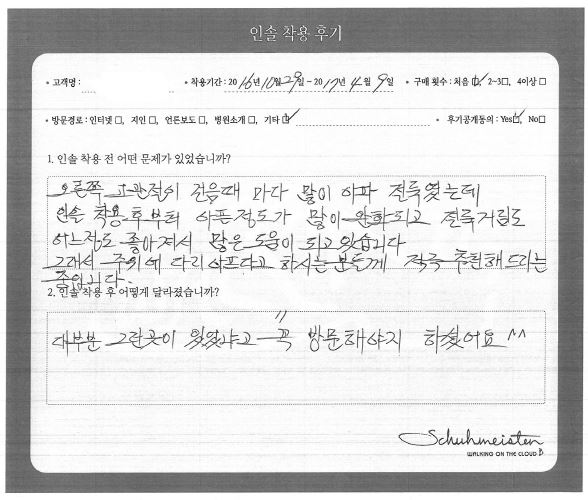 인솔 착용 후기
• 고객명 : • 착용기간 : 2016년 10월 29일 ~ 2017년 4월 9일 • 구매 횟수 : 처음 ☑, 2~3☐, 4이상 ☐
• 방문경로 : 인터넷 ☐, 지인 ☐, 언론보도 ☐, 병원소개 ☐, 기타 ☑ • 후기공개동의 : Yes☑, No☐
1. 인솔 착용 전 어떤 문제가 있었습니까?
오른쪽 고관절이 걸을때 마다 많이 아파 절룩였는데
인솔 착용후부터 아픔정도가 많이 완화되고 절룩거림도
어느정도 좋아져서 많은 도움이 되고 있습니다
그래서 주위에 다리 아프다고 하시는 분들께 적극 추천해드리는
중입니다.
2. 인솔 착용 후 어떻게 달라졌습니까?
대부분 그런곳이 있었냐고 꼭 방문해야지 하셨어요 ^^
Schuhmeister
WALKING ON THE CLOUD B